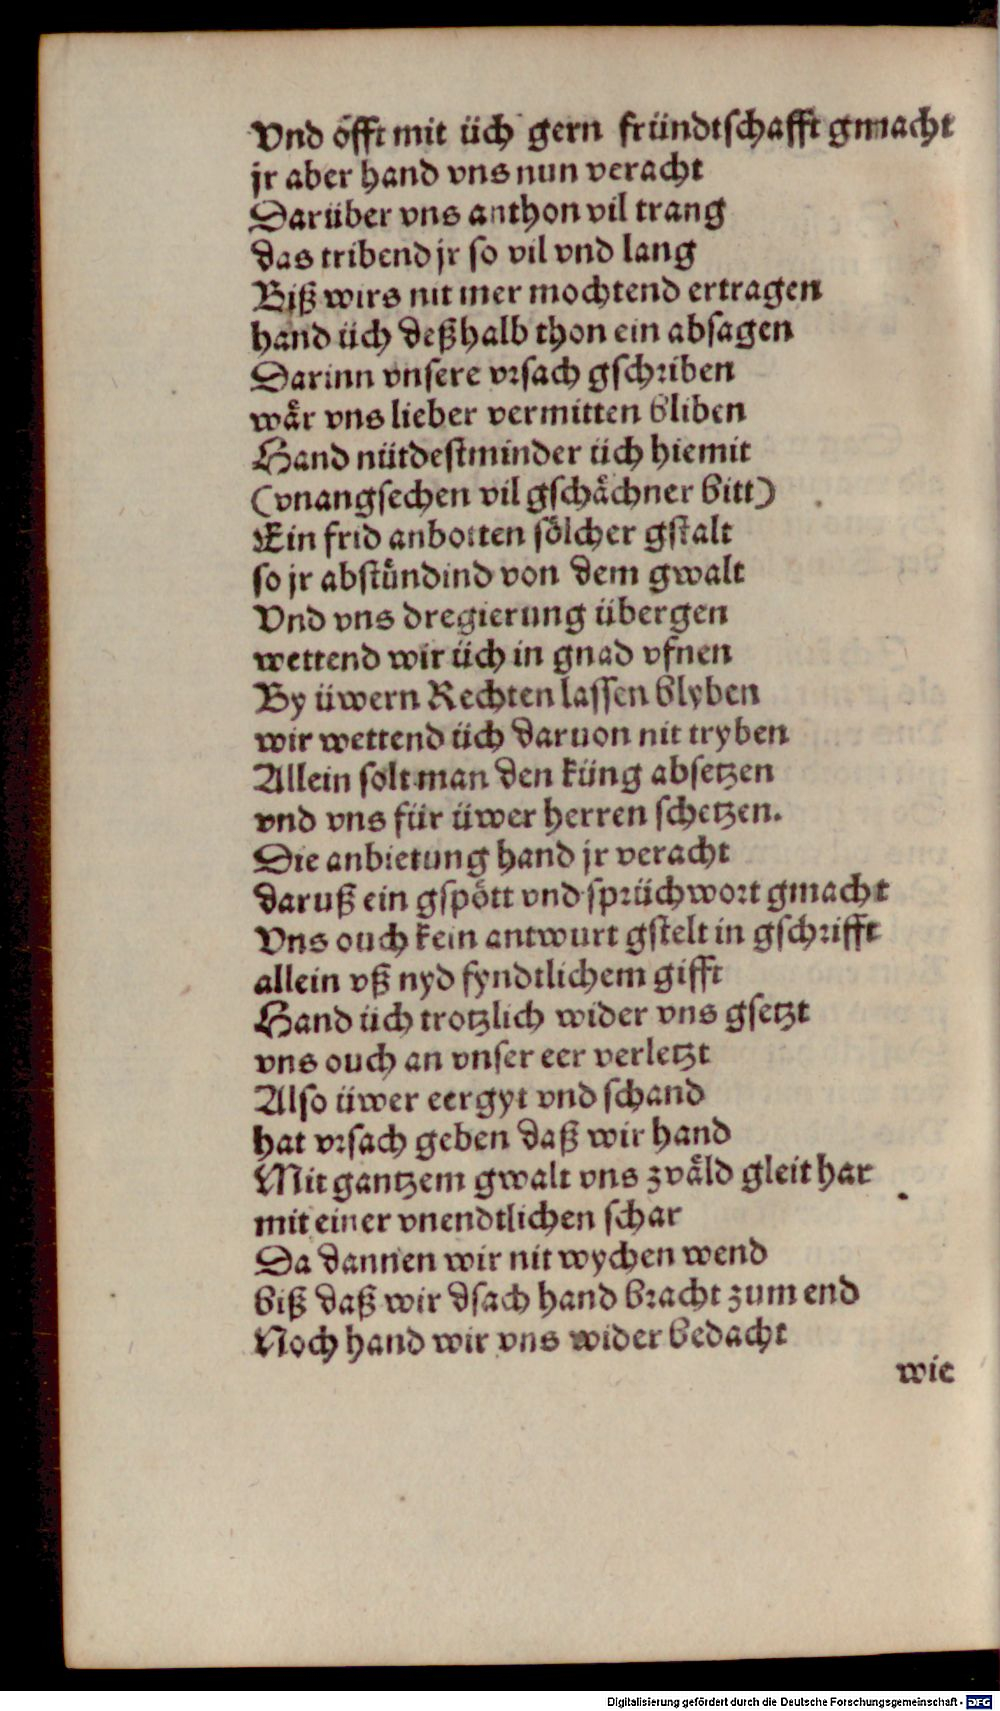 Vnd offt mit üch gern fründtschafft gmacht
jr aber hand vns nun veracht
Darüber vns anthon vil trang
das tribend jr so vil vnd lang
Biß wirs nit mer mochtend ertragen
hand üch deßhalb thon ein absagen
Darinn vnsere vrsach gschriben
wår vns lieber vermitten bliben
Hand nütdestminder üch hiemit
(vnangsechen vil gschåchner bitt)
Ein frid anbotten sölcher gstalt
so jr abstündind von dem gwalt
Vnd vns dregierung übergen
wettend wir üch in gnad vfnen
By üwern Rechten lassen blyben
wir wettend üch daruon nit tryben
Allein solt man den küng absetzen
vnd vns für üwer herren schetzen.
Die anbietung hand jr veracht
daruß ein gspött vnd sprüchwort gmacht
Vns ouch kein antwurt gstelt in gschrifft
allein vß nyd fyndtlichem gifft
Hand üch trotzlich wider vns gsetzt
vns ouch an vnser eer verletzt
Also üwer eergyt vnd schand
hat vrsach geben daß wir hand
Mit gantzem gwalt vns zvåld gleit har
mit einer vnendtlichen schar
Da dannen wir nit wychen wend
biß daß wir dsach hand bracht zum end
Noch hand wir vns wider bedacht
wie
Digitalisierung gefördert durch die Deutsche Forschungsgemeinschaft - DFG